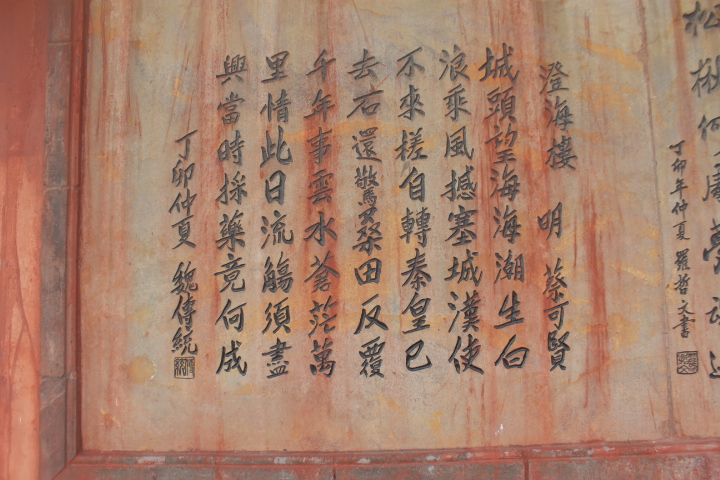 丁卯年仲夏 羅哲文書
澄海樓 明 蔡可賢
城頭望海海潮生白
浪乘風撼塞城漢使
不來槎自轉秦皇已
去石還驚桑田反覆
千年事雲水蒼茫萬
里情此日流觴須盡
興當時採藥竟何成
丁卯仲夏 魏傳統